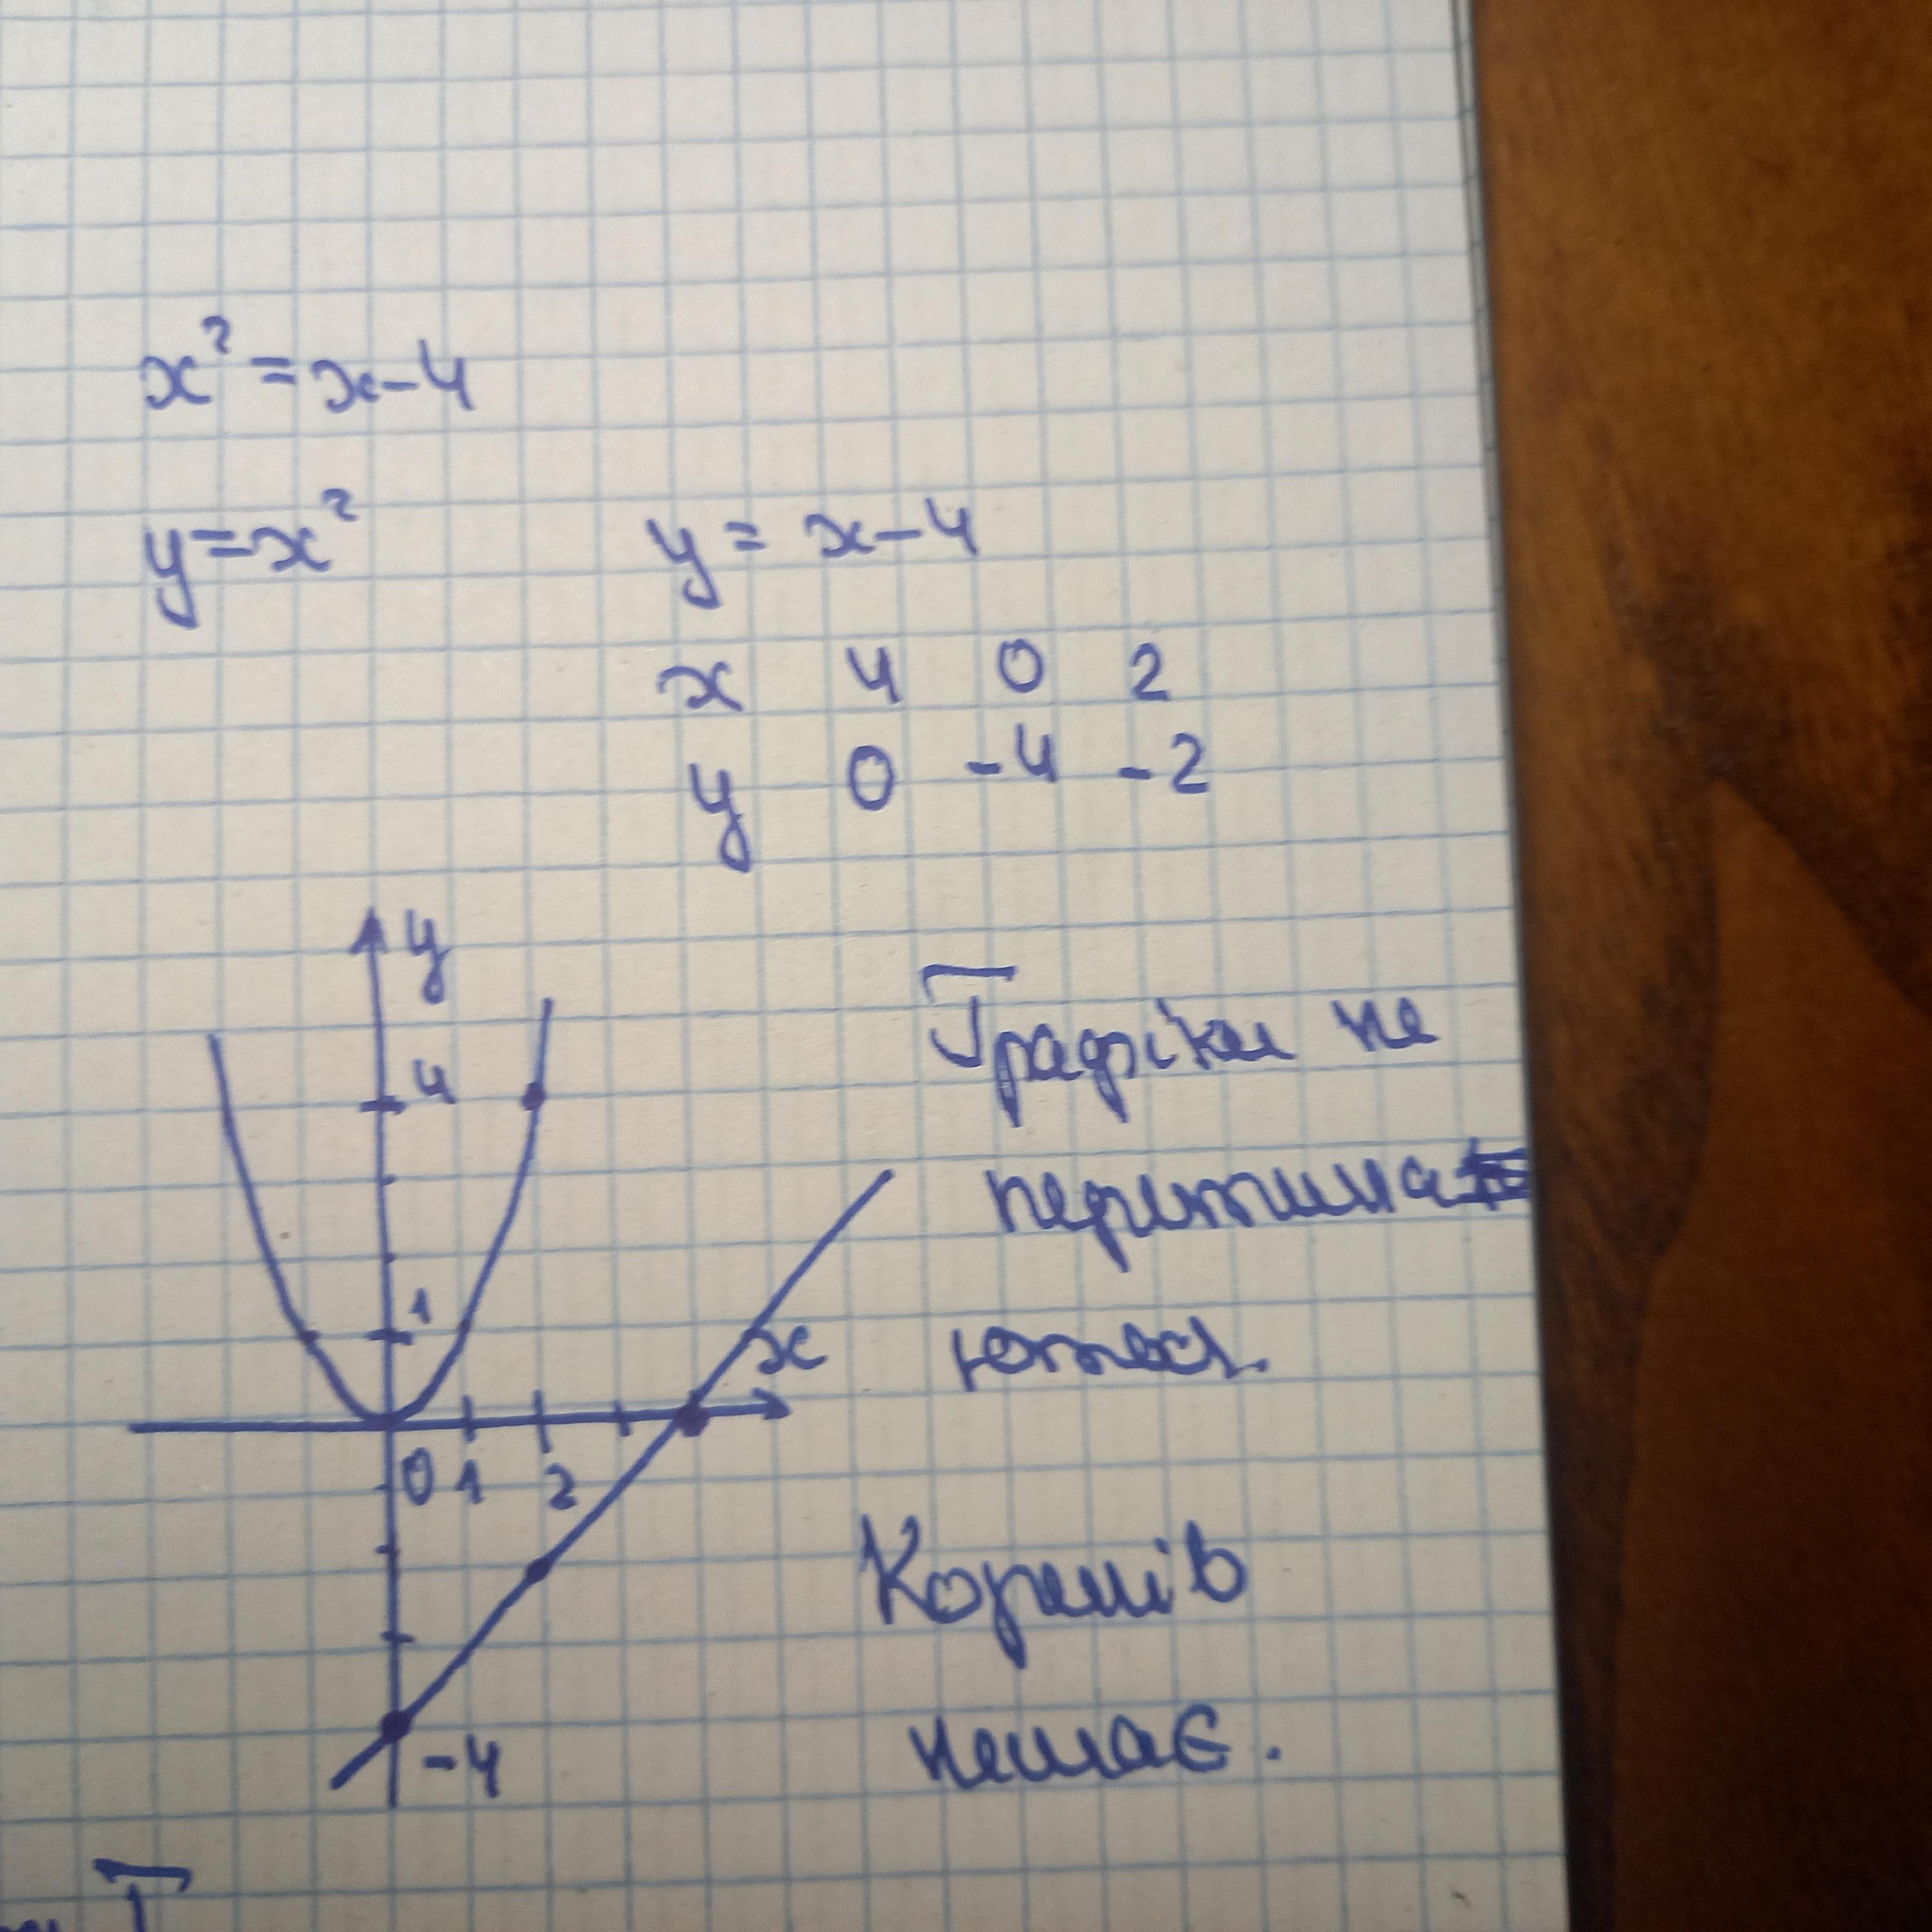 x² = x - 4
y = x² y = x - 4
x 4 0 2
y 0 -4 -2
y
Графіки не
4
перетина
1
x
ються.
0 1 2
Коренів
немає.
-4